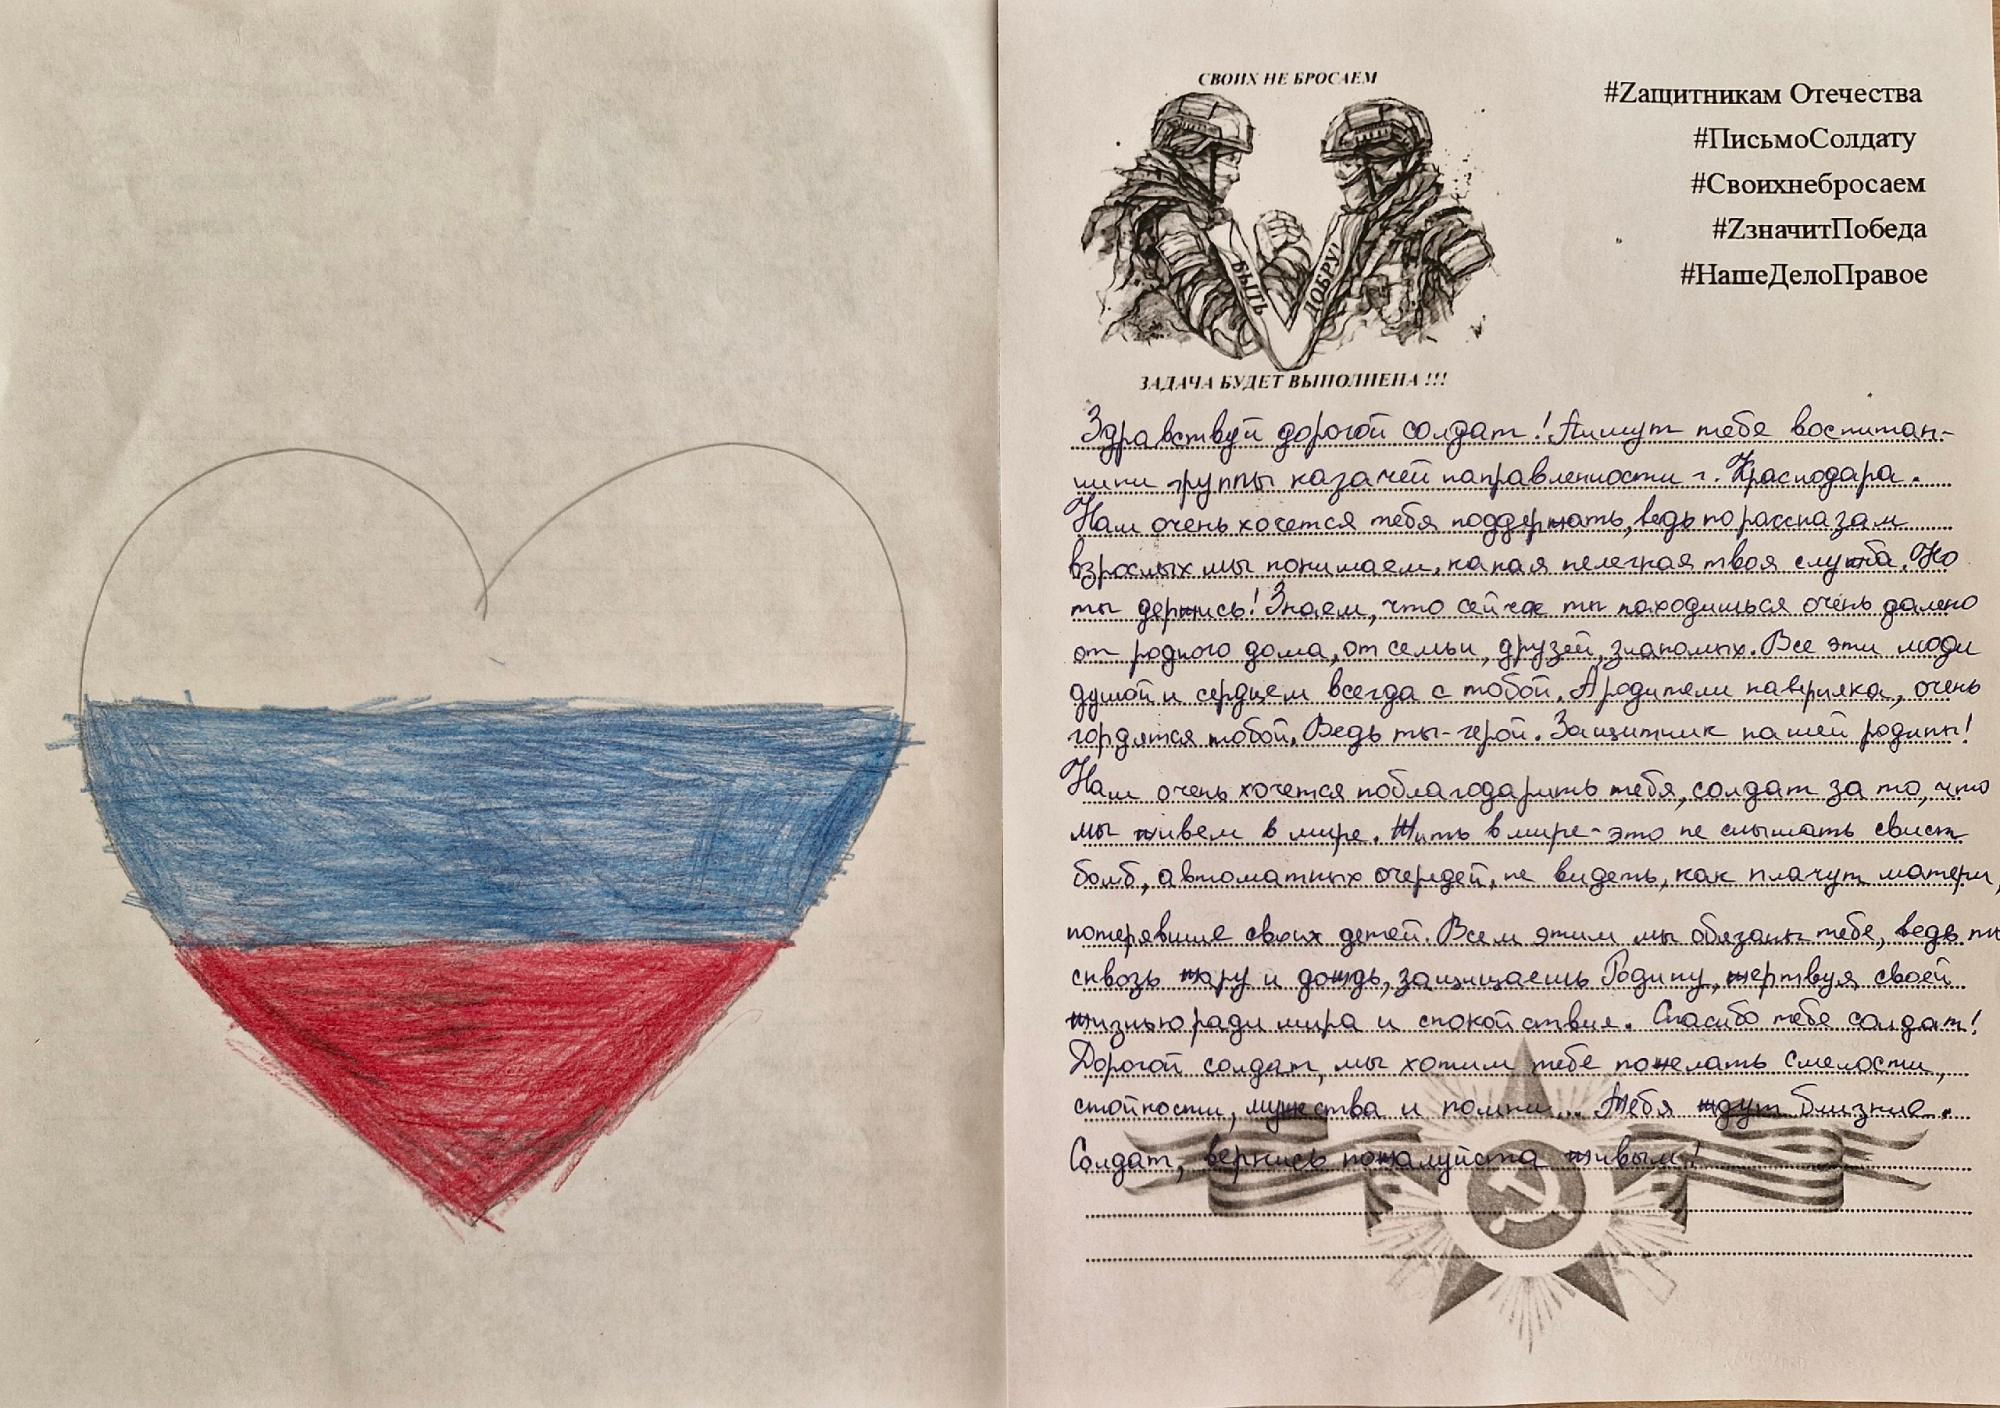 СВОИХ НЕ БРОСАЕМ
БЫТЬ ДОБРУ!
ЗАДАЧА БУДЕТ ВЫПОЛНЕНА !!!
#Zащитникам Отечества
#ПисьмоСолдату
#Своихнебросаем
#ZзначитПобеда
#НашеДелоПравое
Здравствуй дорогой солдат! Пишут тебе воспитан-
ники группы казачей направленности г. Краснодара.
Нам очень хочется тебя поддержать, ведь по рассказам
взрослых мы понимаем, какая нелегкая твоя служба. Но
ты держись! Знаем, что сейчас ты находишься очень далеко
от родного дома, от семьи, друзей, знакомых. Все эти люди
душой и сердцем всегда с тобой. А родители наверняка, очень
гордятся тобой. Ведь ты - герой. Защитник нашей родины!
Нам очень хочется поблагодарить тебя, солдат за то, что
мы живем в мире. Жить в мире - это не слышать свист
бомб, автоматных очередей, не видеть, как плачут матери,
потерявшие своих детей. Всем этим мы обязаны тебе, ведь ты
сквозь жару и дождь, защищаешь Родину, жертвуя своей
жизнью ради мира и спокойствия. Спасибо тебе солдат!
Дорогой солдат, мы хотим тебе пожелать смелости,
стойкости, мужества и помни... Тебя ждут близкие.
Солдат, вернись пожалуйста живым!